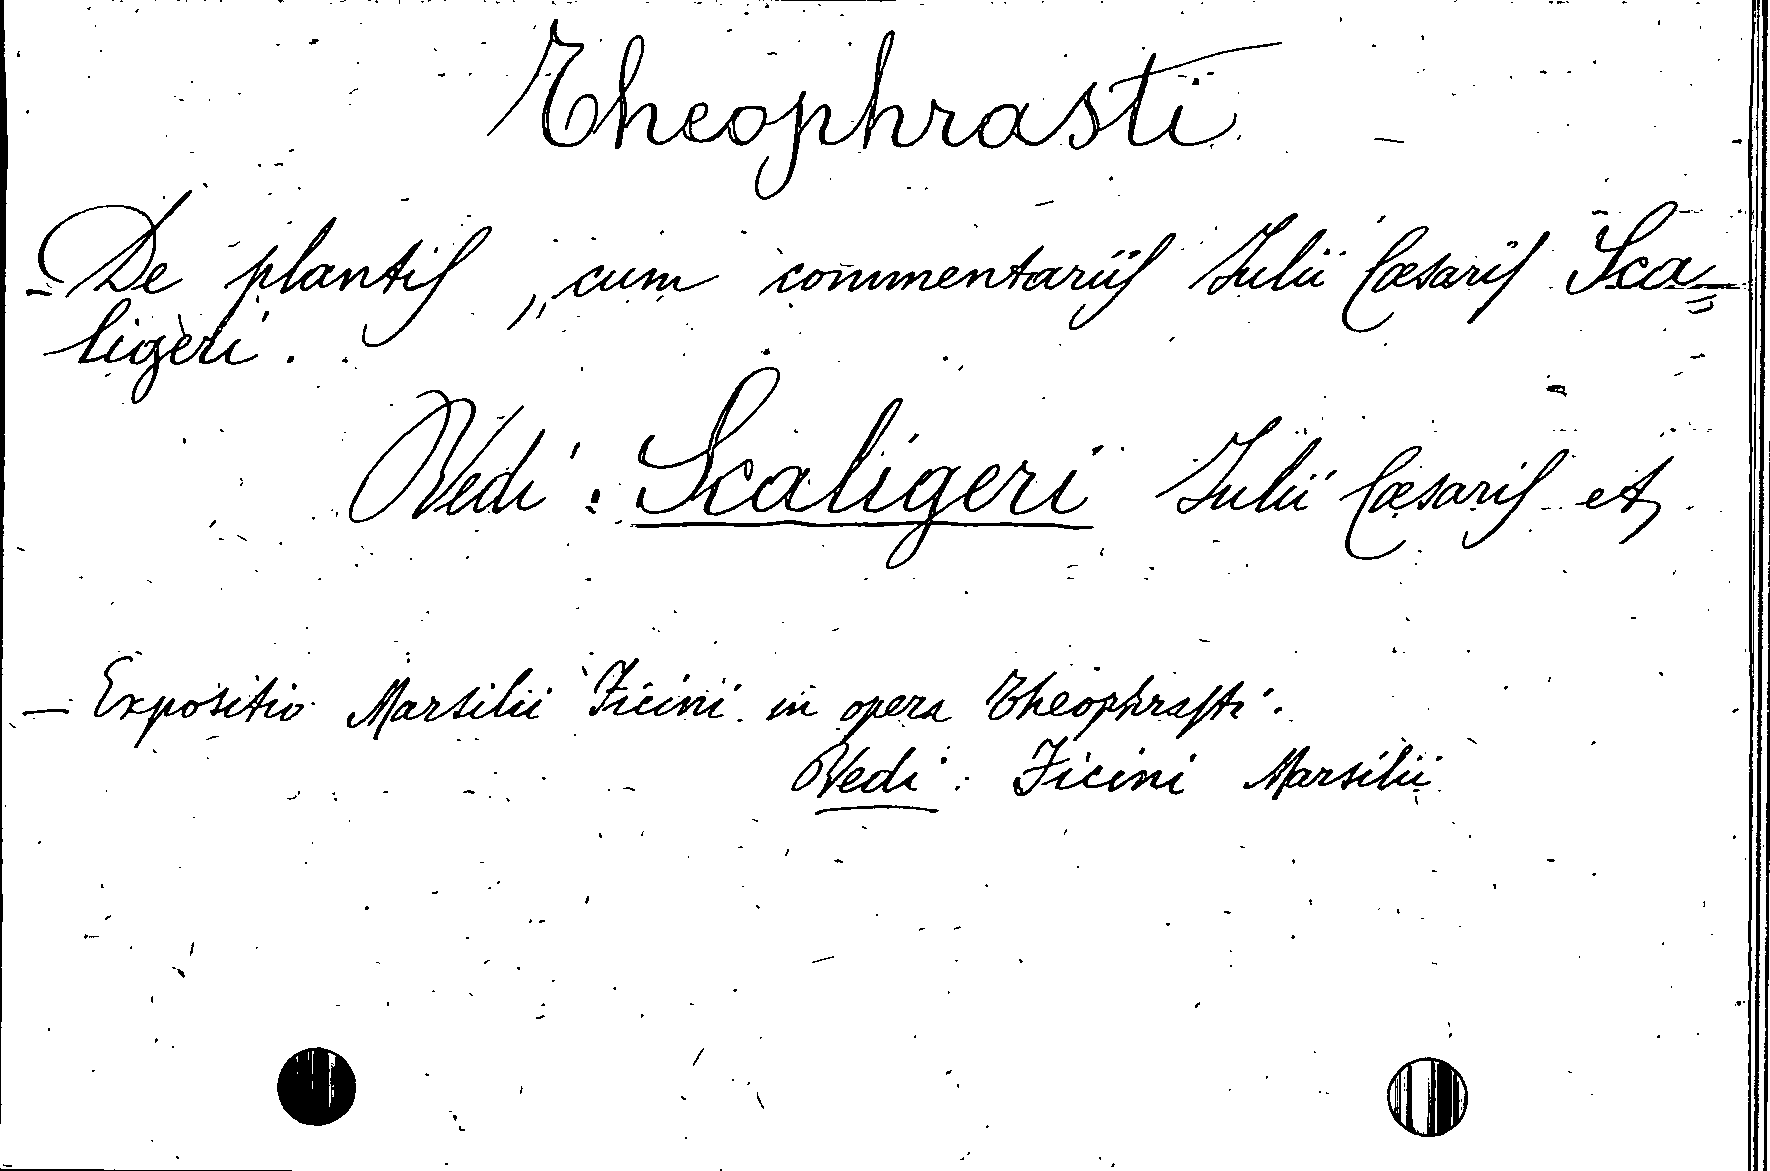 Theophrasti
- De plantis, cum commentariis Iulii Cæsaris Sca=
ligeri.
Vedi: Scaligeri Iulii Cæsaris et
- Expositio Marsilii Ficini in opera Theophrasti.
Vedi: Ficini Marsilii